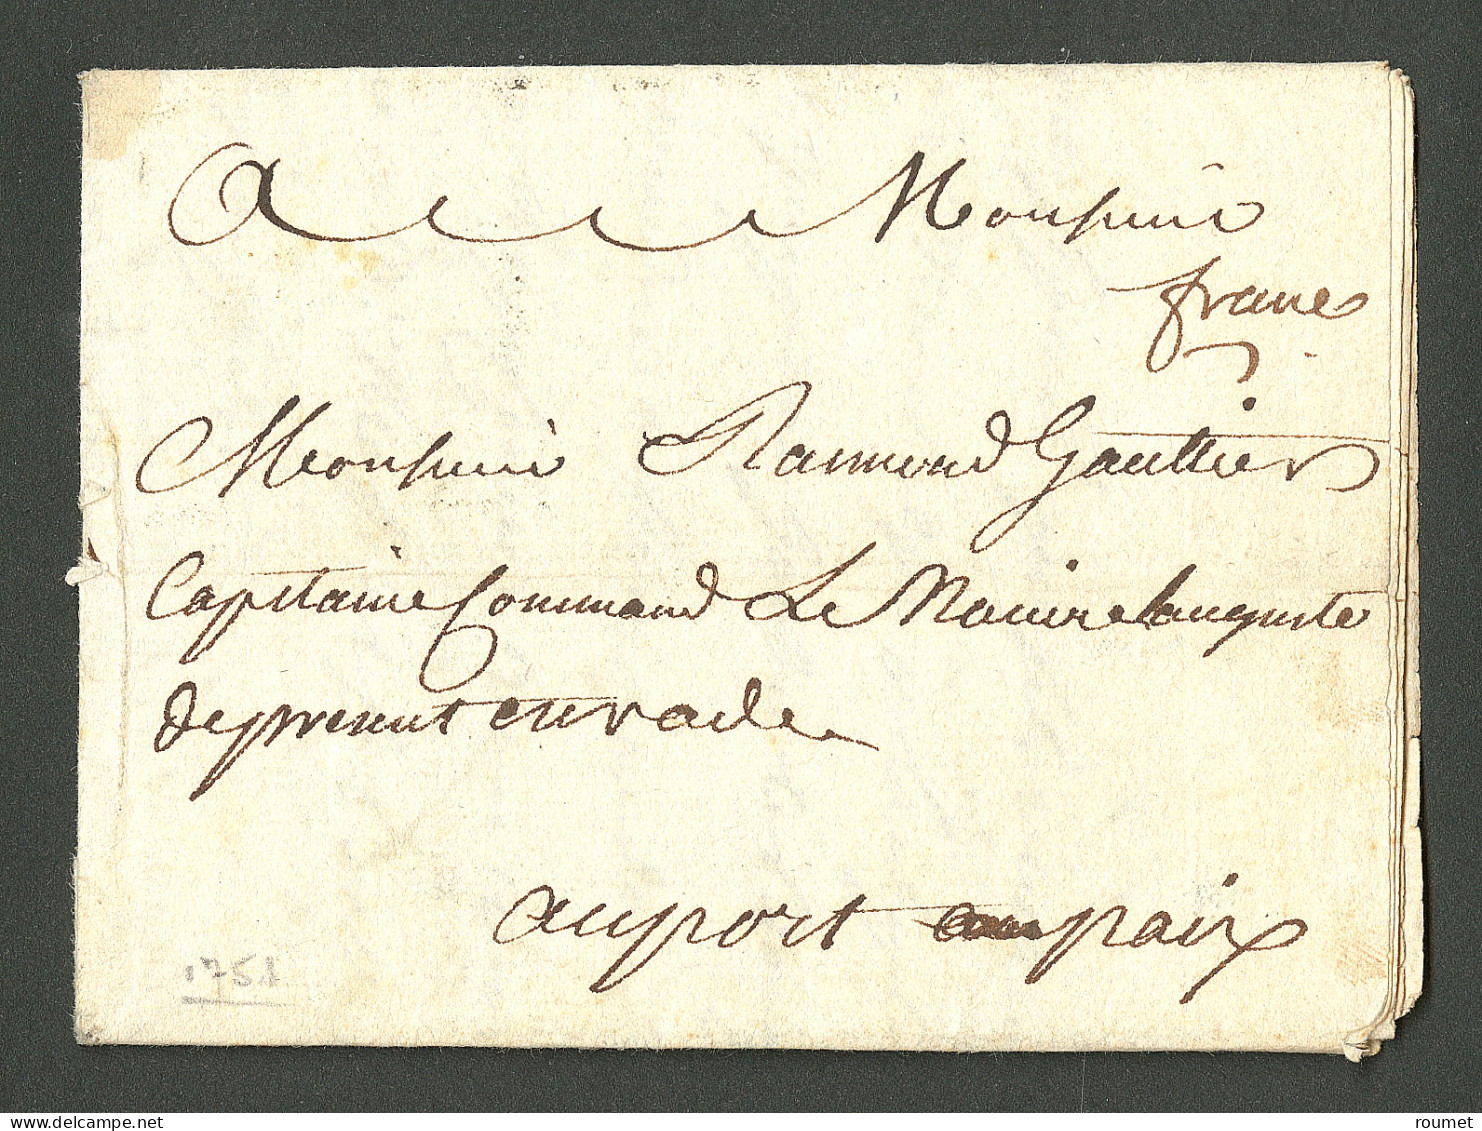 A Monsieur
franc
Monsieur Raimond Gauttier
Capitaine Command Le Navire lauguste
de present en rade
au port au paix
1751
roumet